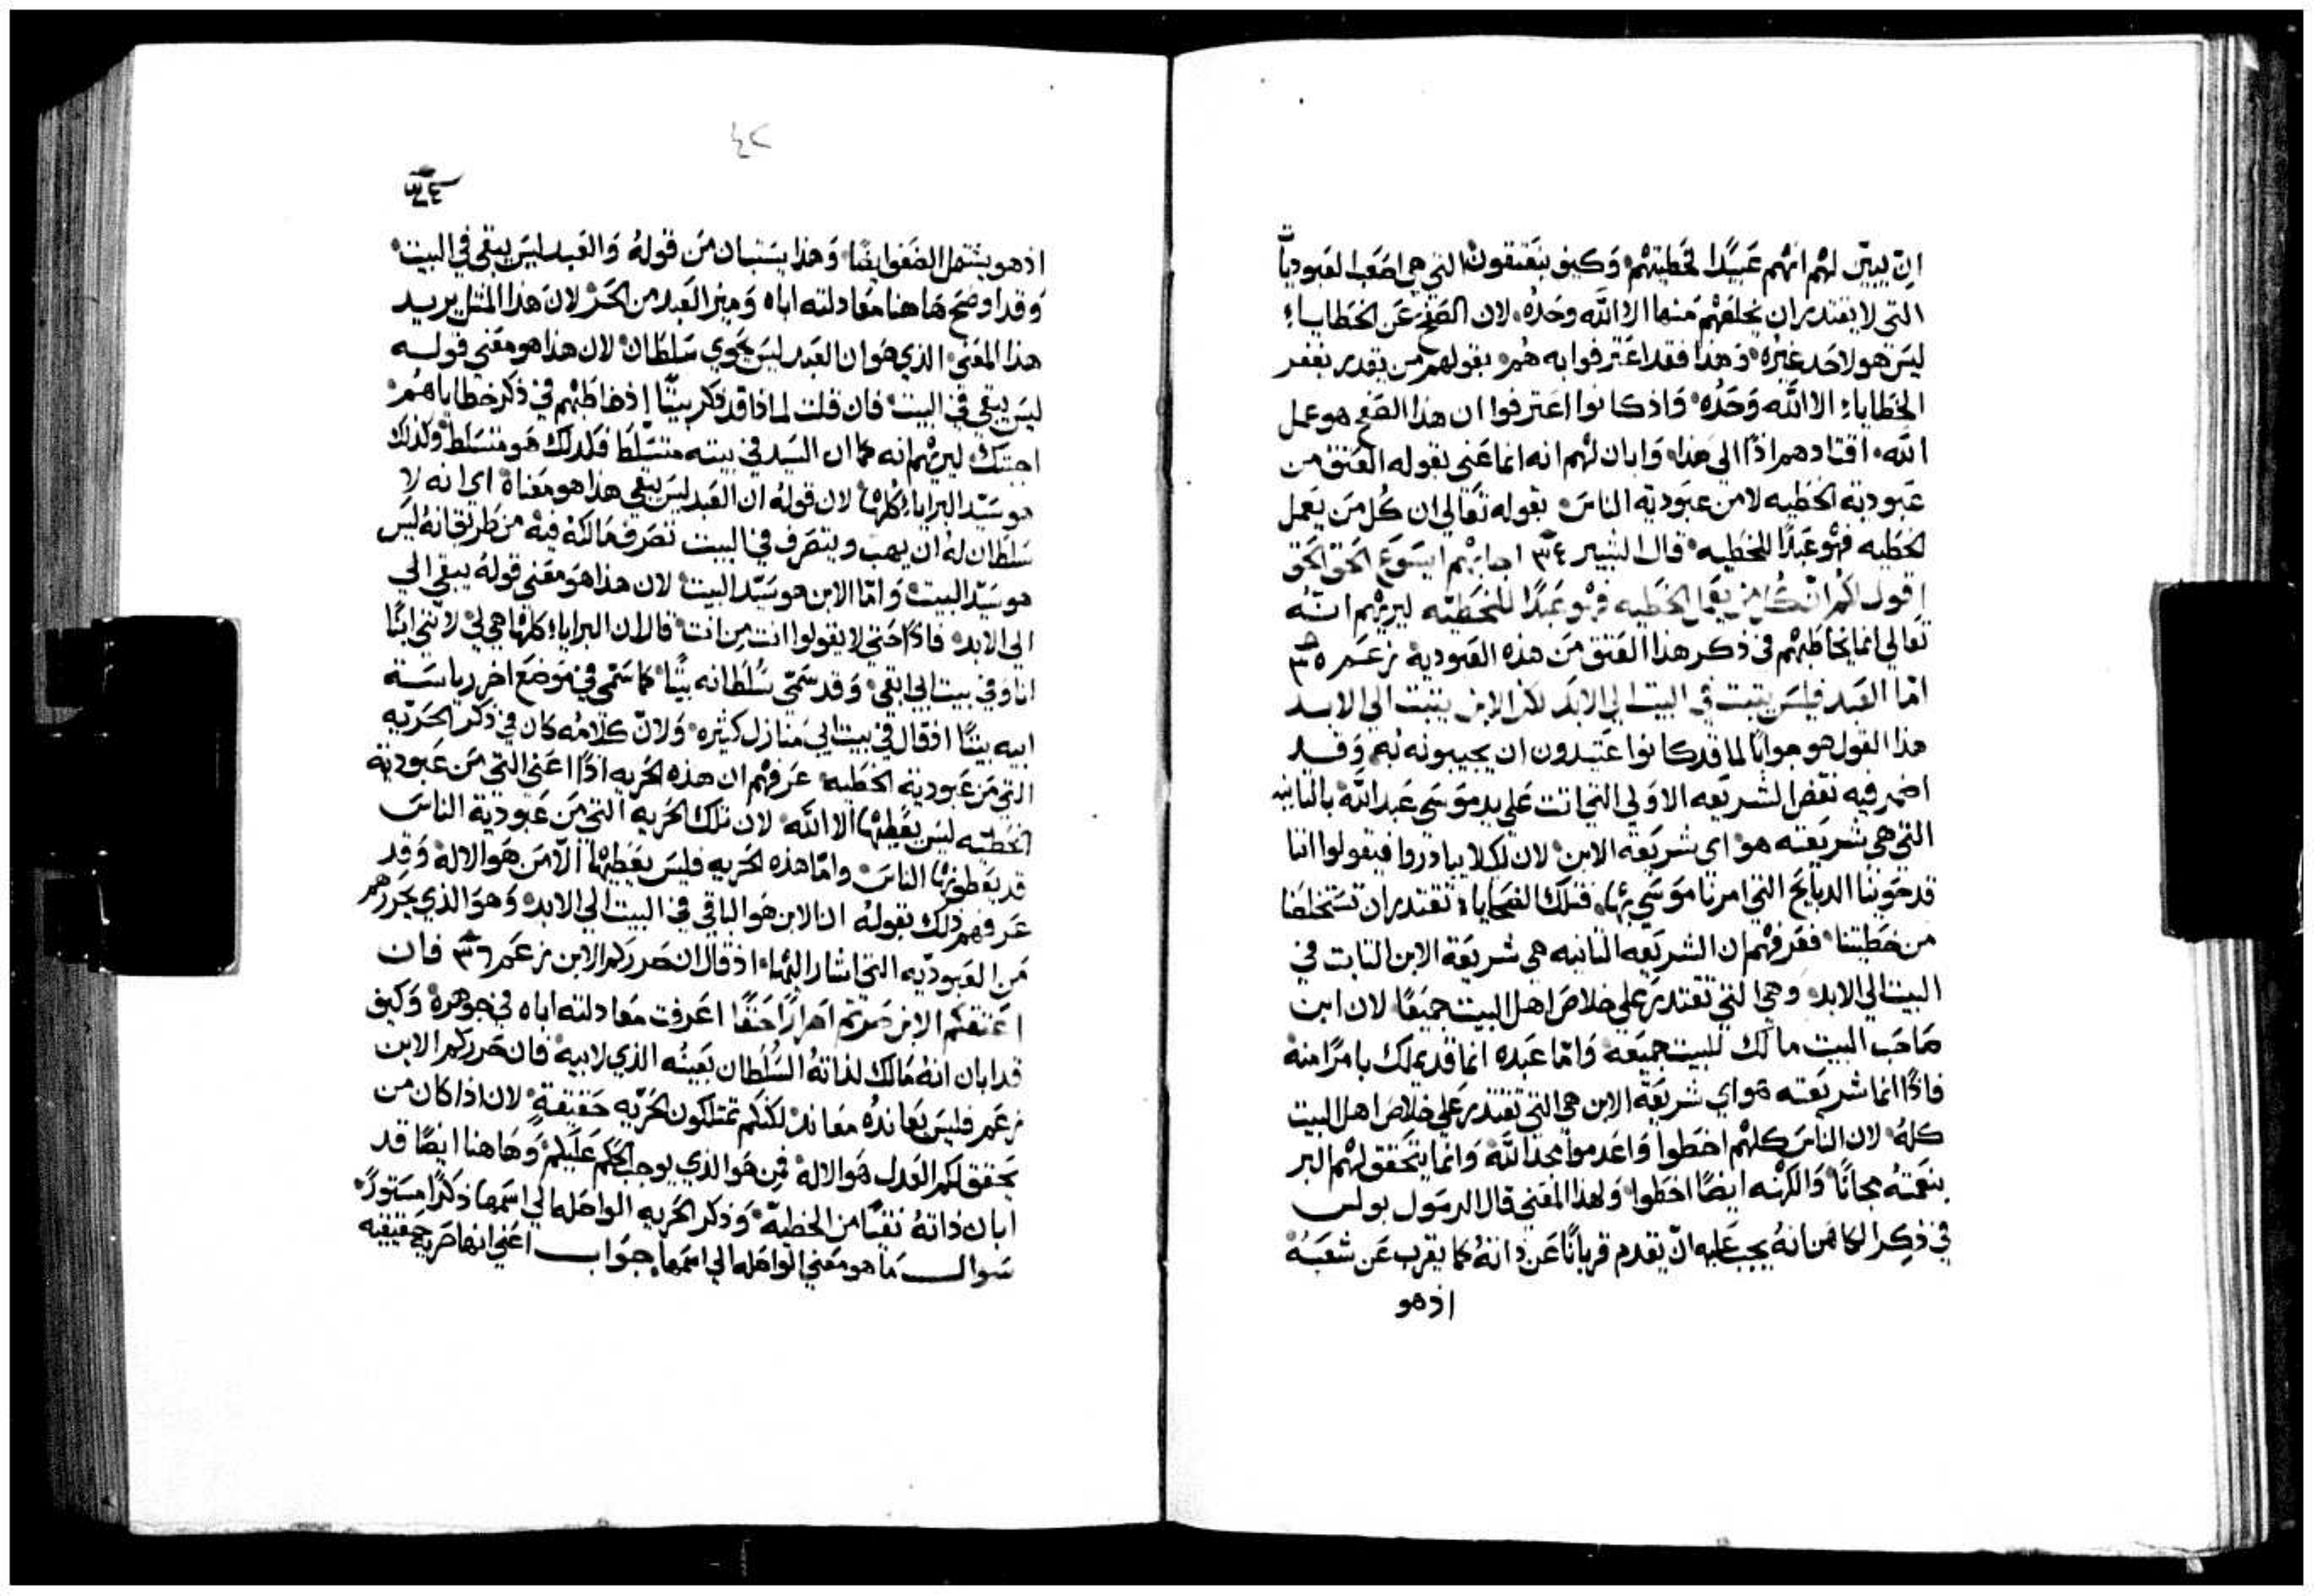 ان يبيّن لهم انهم عبيدًا لخطيتهم وكيف ينعتقون التي هي اصعب العبوديات
التي لا يقتدر ان يخلصهم منها الا الله وحده لان الصفح عن الخطايا
ليس هو لاحد غيره وهذا فقد اعترفوا به هم بقولهم من يقدر يغفر
الخطايا الا الله وحده واذ كانوا اعترفوا ان هذا الصفح هو عمل
الله اقتادهم اذًا الي هذا وابان لهم انه انما عني بقوله العتق من
عبودية الخطيه لا من عبودية الناس بقوله تعالي ان كل من يعمل
الخطيه فهو عبدًا للخطيه قال البشير ٣٤ اجابهم ايسوع الحق الحق
اقول لكم ان كل من يعمل الخطيه فهو عبدًا للخطيّه ليريهم انه
تعالي انما يخاطبهم في ذكر هذا العتق من هذه العبودية زعم ٣٥
امّا العبد فليس يثبت في البيت الي الابد لكن الابن يثبت الي الابد
هذا القول هو جوابًا لما قد كانوا عتيدون ان يجيبونه به وقد
اضمر فيه نقض الشريعه الاولي التي اتت علي يد موسي عبد الله بالثانيه
التي هي شريعته هو اي شريعة الابن لان لكيلا يبادروا فيقولوا اننا
قد حوينا الدبايح التي امرنا موسي بها فتلك الضحايا تقتدر ان تستخلصنا
من خطيتنا فعرفهم ان الشريعه الثانيه هي شريعة الابن الثابت في
البيت الي الابد وهي التي تقتدر علي خلاص اهل البيت جميعًا لان ابن
صاحب البيت مالك للبيت جميعه وامّا عبده انما قد يملك بامرًا منه
فاذًا انما شريعته هو اي شريعة الابن هي التي تقتدر علي خلاص اهل البيت
كله لان الناس كلهم اخطوا واعدموا مجد الله وانما يتحقق لهم البر
بنعمته مجانًا والكهنه ايضًا اخطوا ولهذا المعني قال الرسول بولس
في ذكر الكاهن انه يجب عليه ان يقدم قربانًا عن ذاته كما يقرب عن شعبه
اذ هو
٤٢
٣٤
اذ هو يشتمل الضعف ايضًا وهذا يستبان من قوله والعبد ليس يبقي في البيت
وقد اوضح هاهنا معادلته اباه وميز العبد من الحر لان هذا المثل يريد
هذا المعني الذي هو ان العبد ليس يحوي سلطان لان هذا هو معني قوله
ليس يبقي في البيت فان قلت لماذا قد ذكر بيتًا اذ خاطبهم في ذكر خطاياهم
اجبتك ليريهم انه كما ان السيد في بيته متسلطًا فكذلك هو متسلط وكذلك
هو سيّد البرايا كلها لان قوله ان العبد ليس يبقي هذا هو معناه اي انه لا
سلطان له ان يهب ويتصرف في البيت تصرف مالكه فيه من طريق انه ليس
هو سيّد البيت وامّا الابن هو سيّد البيت لان هذا هو معني قوله يبقي الي
الي الابد فاذًا حتي لا يقولوا انت من انت قال ان البرايا كلها هي لي لانني ابنًا
انا وفي بيت ابي ابقي وقد سمّي سلطانه بيتًا كما سمّي في موضع اخر رياسة
ابيه بيتًا اذ قال في بيت ابي منازل كثيره ولان كلامه كان في ذكر الحريّه
التي من عبودية الخطيه عرفهم ان هذه الحريه اذًا اعني التي من عبودية
الخطيّه ليس يعطيها الا الله لان تلك الحريه التي من عبودية الناس
قد يعطونها الناس وامّا هذه الحريه فليس يعطيها الا من هو الاله وقد
عرفهم ذلك بقوله ان الابن هو الباقي في البيت الي الابد وهو الذي يحررهم
من العبوديّه التي اشار اليها اذ قال ان حرركم الابن زعم ٣٦ فان
اعتقكم الابن صرتم احرارًا حقًا اعرفت معادلته اباه في جوهره وكيف
قد ابان انه مالك لذاته السلطان بعينه الذي لابيه فان حرركم الابن
زعم فليس يعانده معاند لكنكم تمتلكون الحريّه حقيقة لان اذا كان من
يحقق لكم العدل هو الاله فمن هو الذي يوجب الحكم عليكم وهاهنا ايضًا قد
ابان ذاته نقيًا من الخطيّه وذكر الحريه الواصله الي اسمها ذكرًا مستورًا
سوال ما هو معني الواصله الي اسمها جواب اعني انها حريه حقيقيه